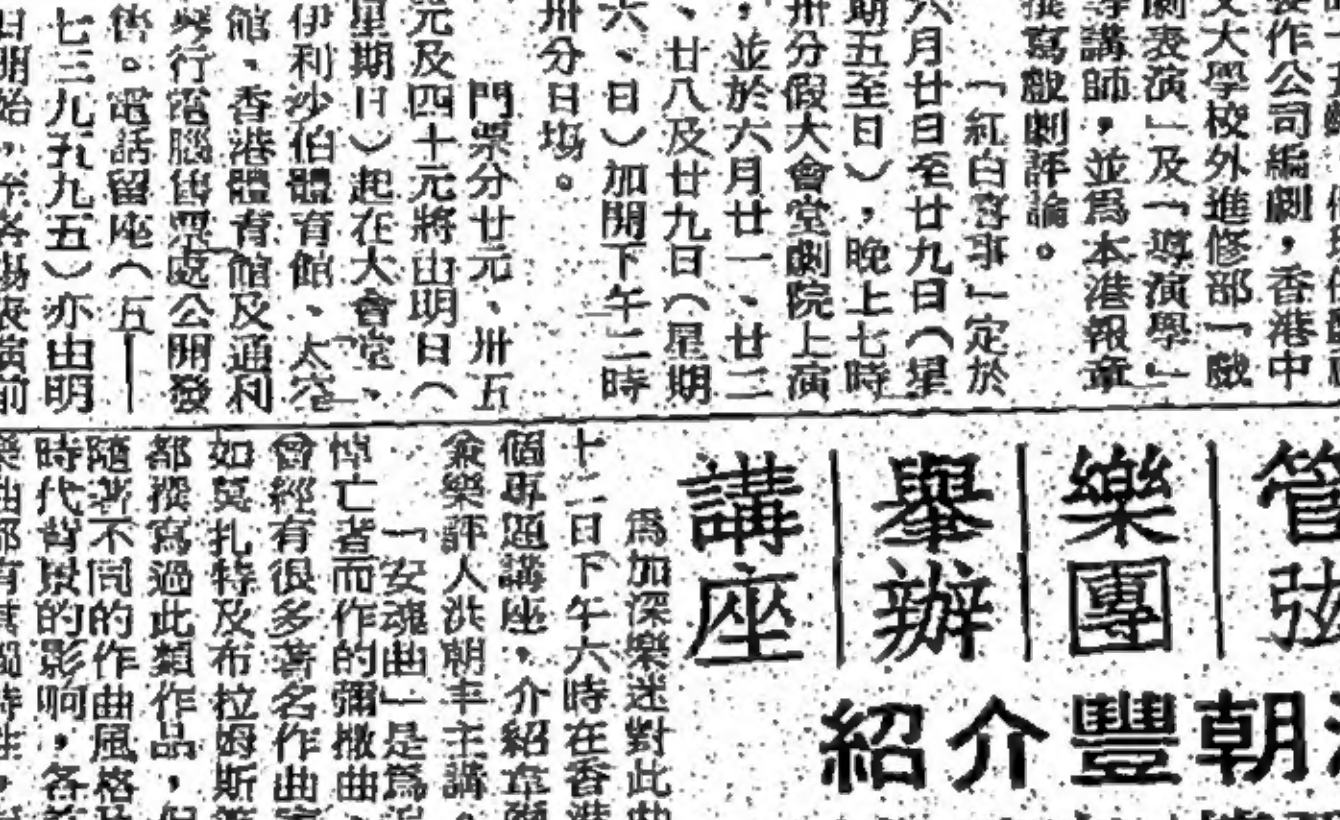 裝作公司編劇，香港中
文大學校外進修部「戲
劇表演」及「導演學」
等講師，並爲本港報章
撰寫戲劇評論。
「紅白喜事」定於
六月廿日至廿九日（星
期五至日），晚上七時
卅分假大會堂劇院上演
，並於六月廿一、廿二
、廿八及廿九日（星期
六、日）加開下午二時
卅分日塲。
門票分廿元、卅五
元及四十元將由明日（
星期日）起在大會堂、
伊利沙伯體育館、太空
館、香港體育館及通利
琴行電腦售票處公開發
售。電話留座（五——
七三九五九五）亦由明
日開始，
管弦
樂團
舉辦
講座
朝豐介紹
爲加深樂迷對此
十二日下午六時在香港
個專題講座，介紹
樂評人洪朝丰主講
「安魂曲」是爲
悼亡者而作的彌撒曲
曾經有很多著名作曲
如莫扎特及布拉姆斯
都撰寫過此類作品，
隨著不同的作曲風格
時代背景的影响，各